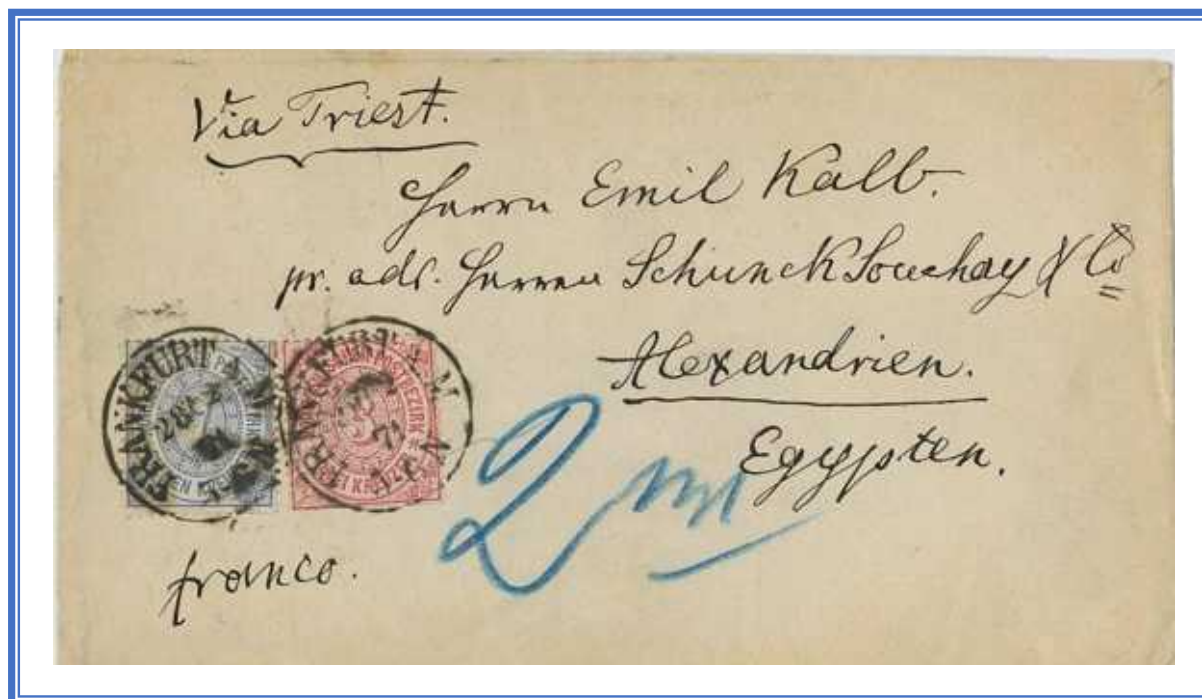 Via Triest.
Herrn Emil Kalb.
pr. adr. Herren Schunck Souchay & Co
Alexandrien.
Egypten.
FRANKFURT A. M.
FRANKFURT A. M.
POSTBEZIRK
2
franco.